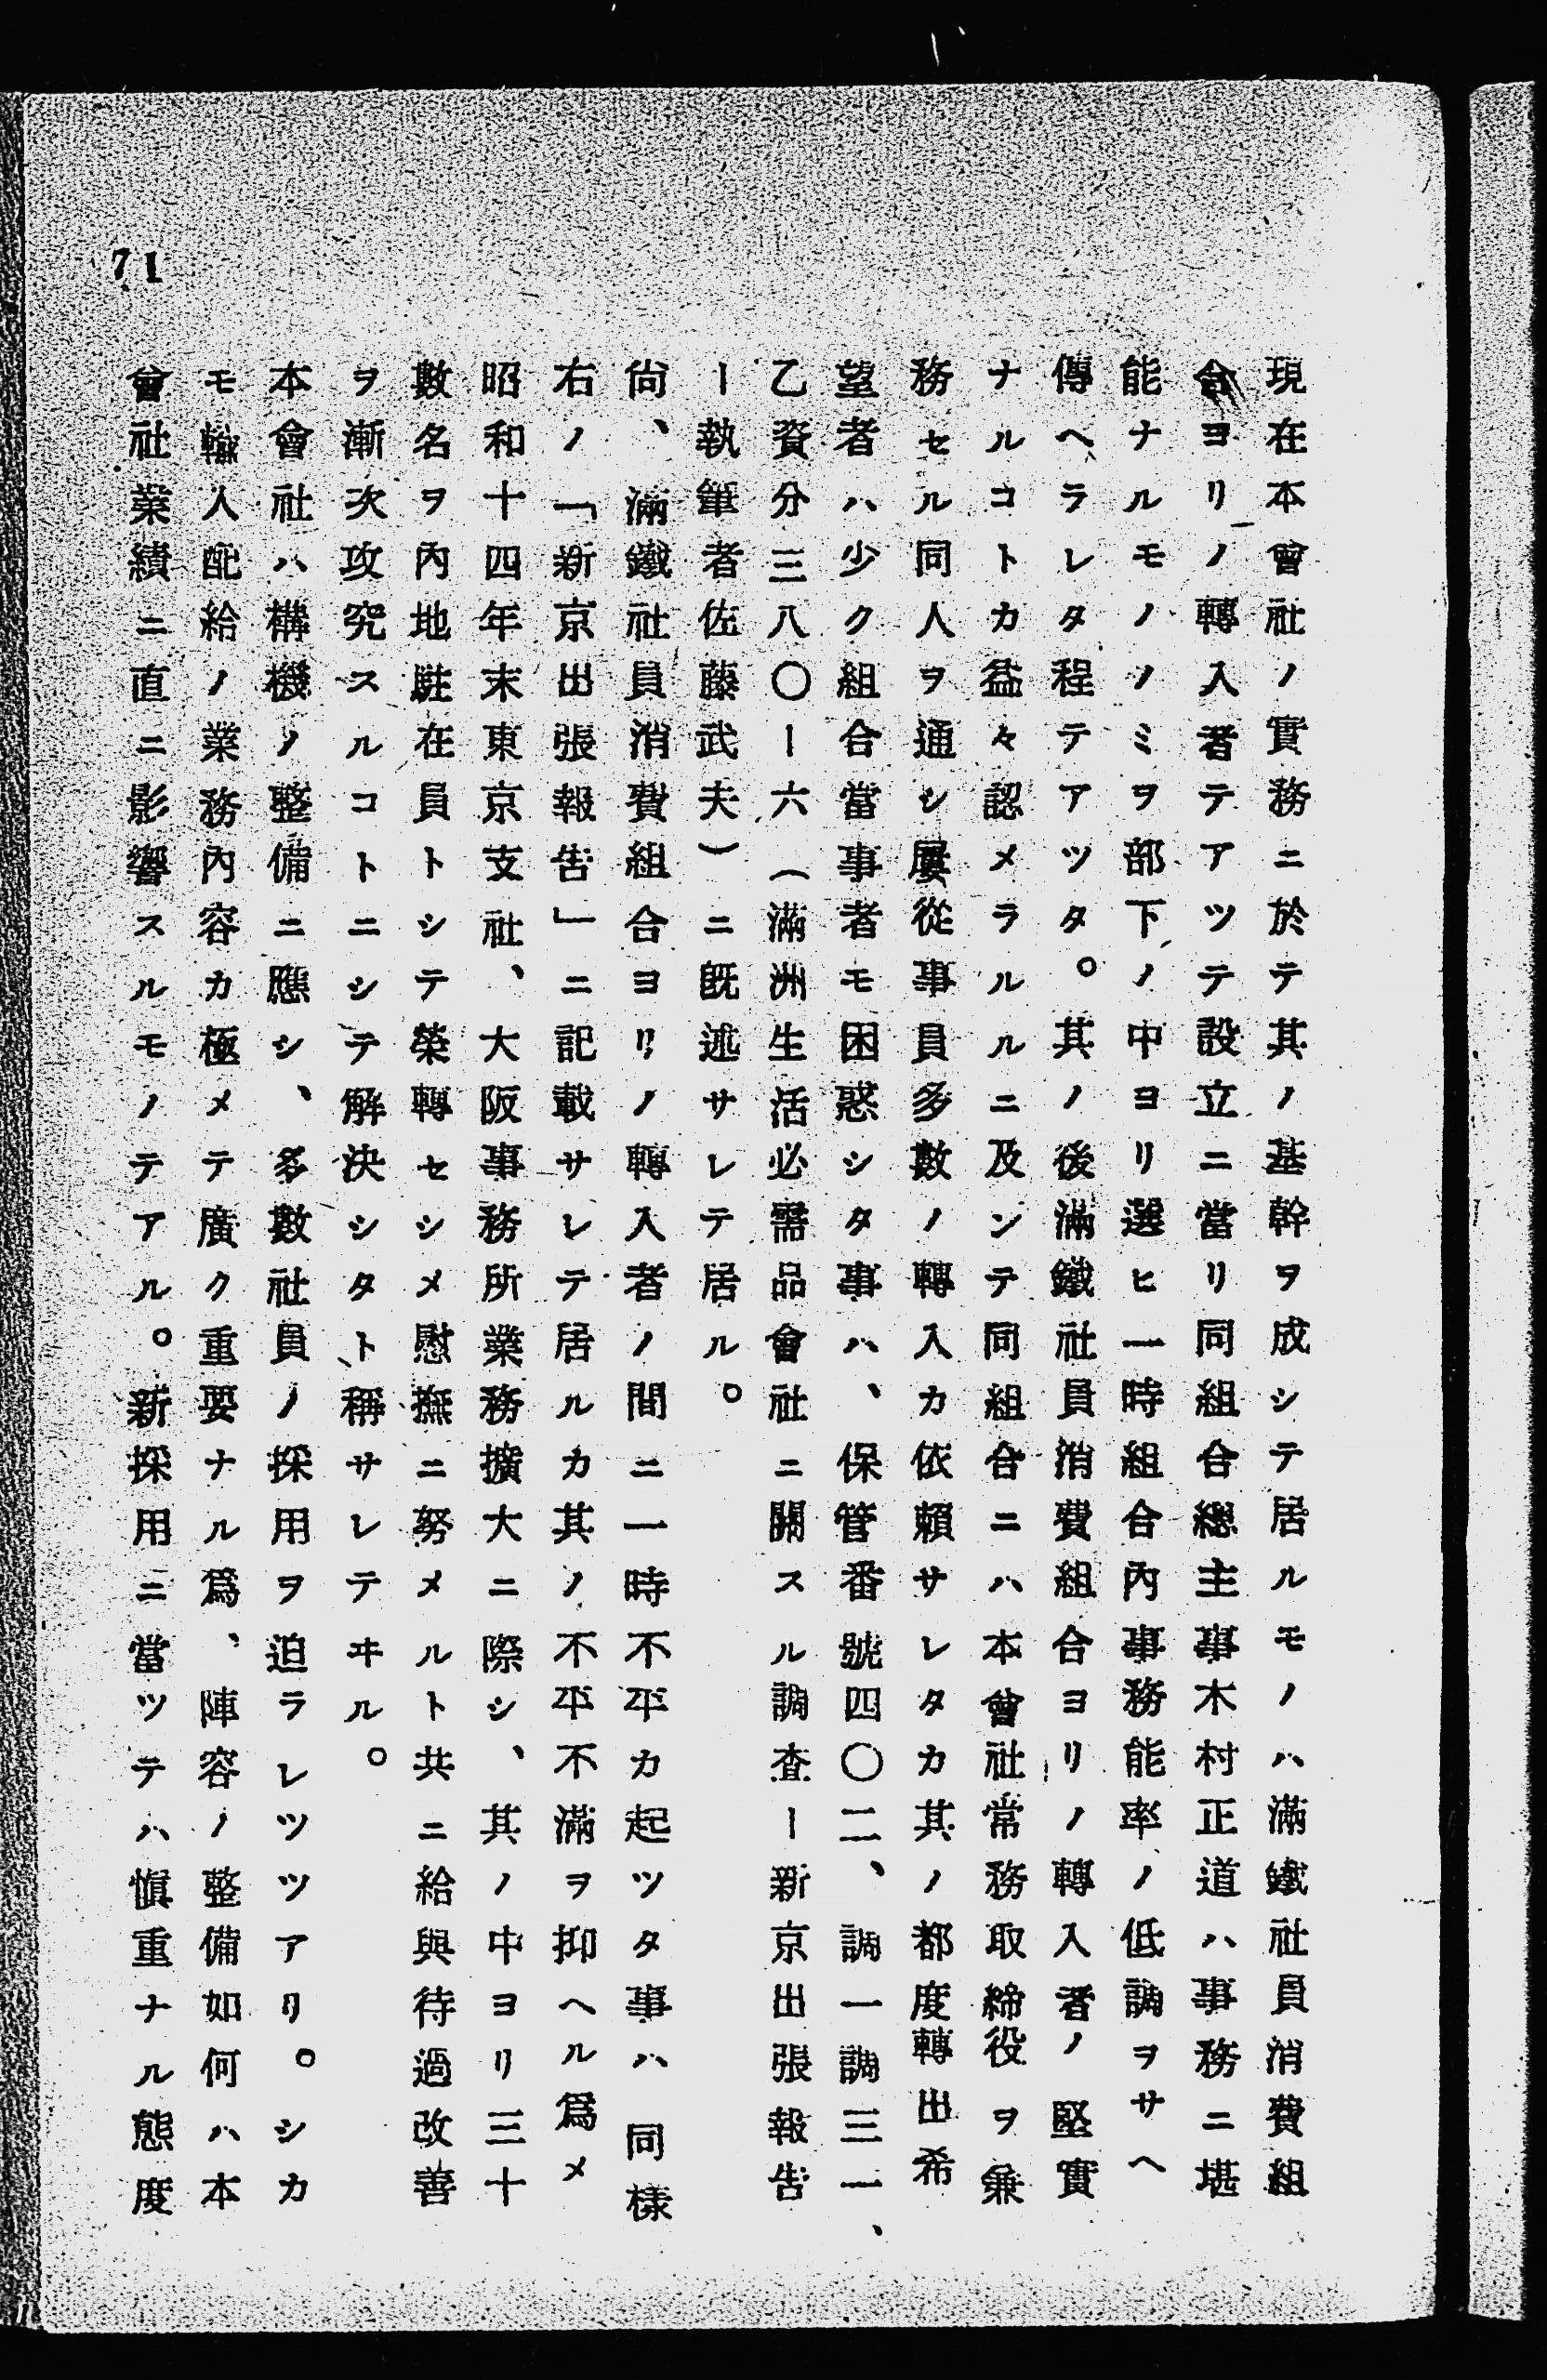 現在本會社ノ實務ニ於テ其ノ基幹ヲ成シテ居ルモノハ滿鐵社員消費組
合ヨリノ轉入者テアツテ設立ニ當リ同組合總主事木村正道ハ事務ニ堪
能ナルモノノミヲ部下ノ中ヨリ選ヒ一時組合內事務能率ノ低調ヲサヘ
傳ヘラレタ程テアツタ。其ノ後滿鐵社員消費組合ヨリノ轉入者ノ堅實
ナルコトカ益々認メラルルニ及ンテ同組合ニハ本會社常務取締役ヲ兼
務セル同人ヲ通シ屢從事員多數ノ轉入カ依賴サレタカ其ノ都度轉出希
望者ハ少ク組合當事者モ困惑シタ事ハ、保管番號四〇二、調一調三一、
乙資分三八〇ー六（滿洲生活必需品會社ニ關スル調査ー新京出張報告
ー執筆者佐藤武夫）ニ旣述サレテ居ル。
尙、滿鐵社員消費組合ヨリノ轉入者ノ間ニ一時不平カ起ツタ事ハ同樣
右ノ「新京出張報告」ニ記載サレテ居ルカ其ノ不平不滿ヲ抑ヘル爲メ
昭和十四年末東京支社、大阪事務所業務擴大ニ際シ、其ノ中ヨリ三十
數名ヲ內地駐在員トシテ榮轉セシメ慰撫ニ努メルト共ニ給與待遇改善
ヲ漸次攻究スルコトニシテ解決シタト稱サレテヰル。
本會社ハ構機ノ整備ニ應シ、多數社員ノ採用ヲ迫ラレツツアリ。シカ
モ輸入配給ノ業務內容カ極メテ廣ク重要ナル爲、陣容ノ整備如何ハ本
會社業績ニ直ニ影響スルモノテアル。新採用ニ當ツテハ愼重ナル態度
71